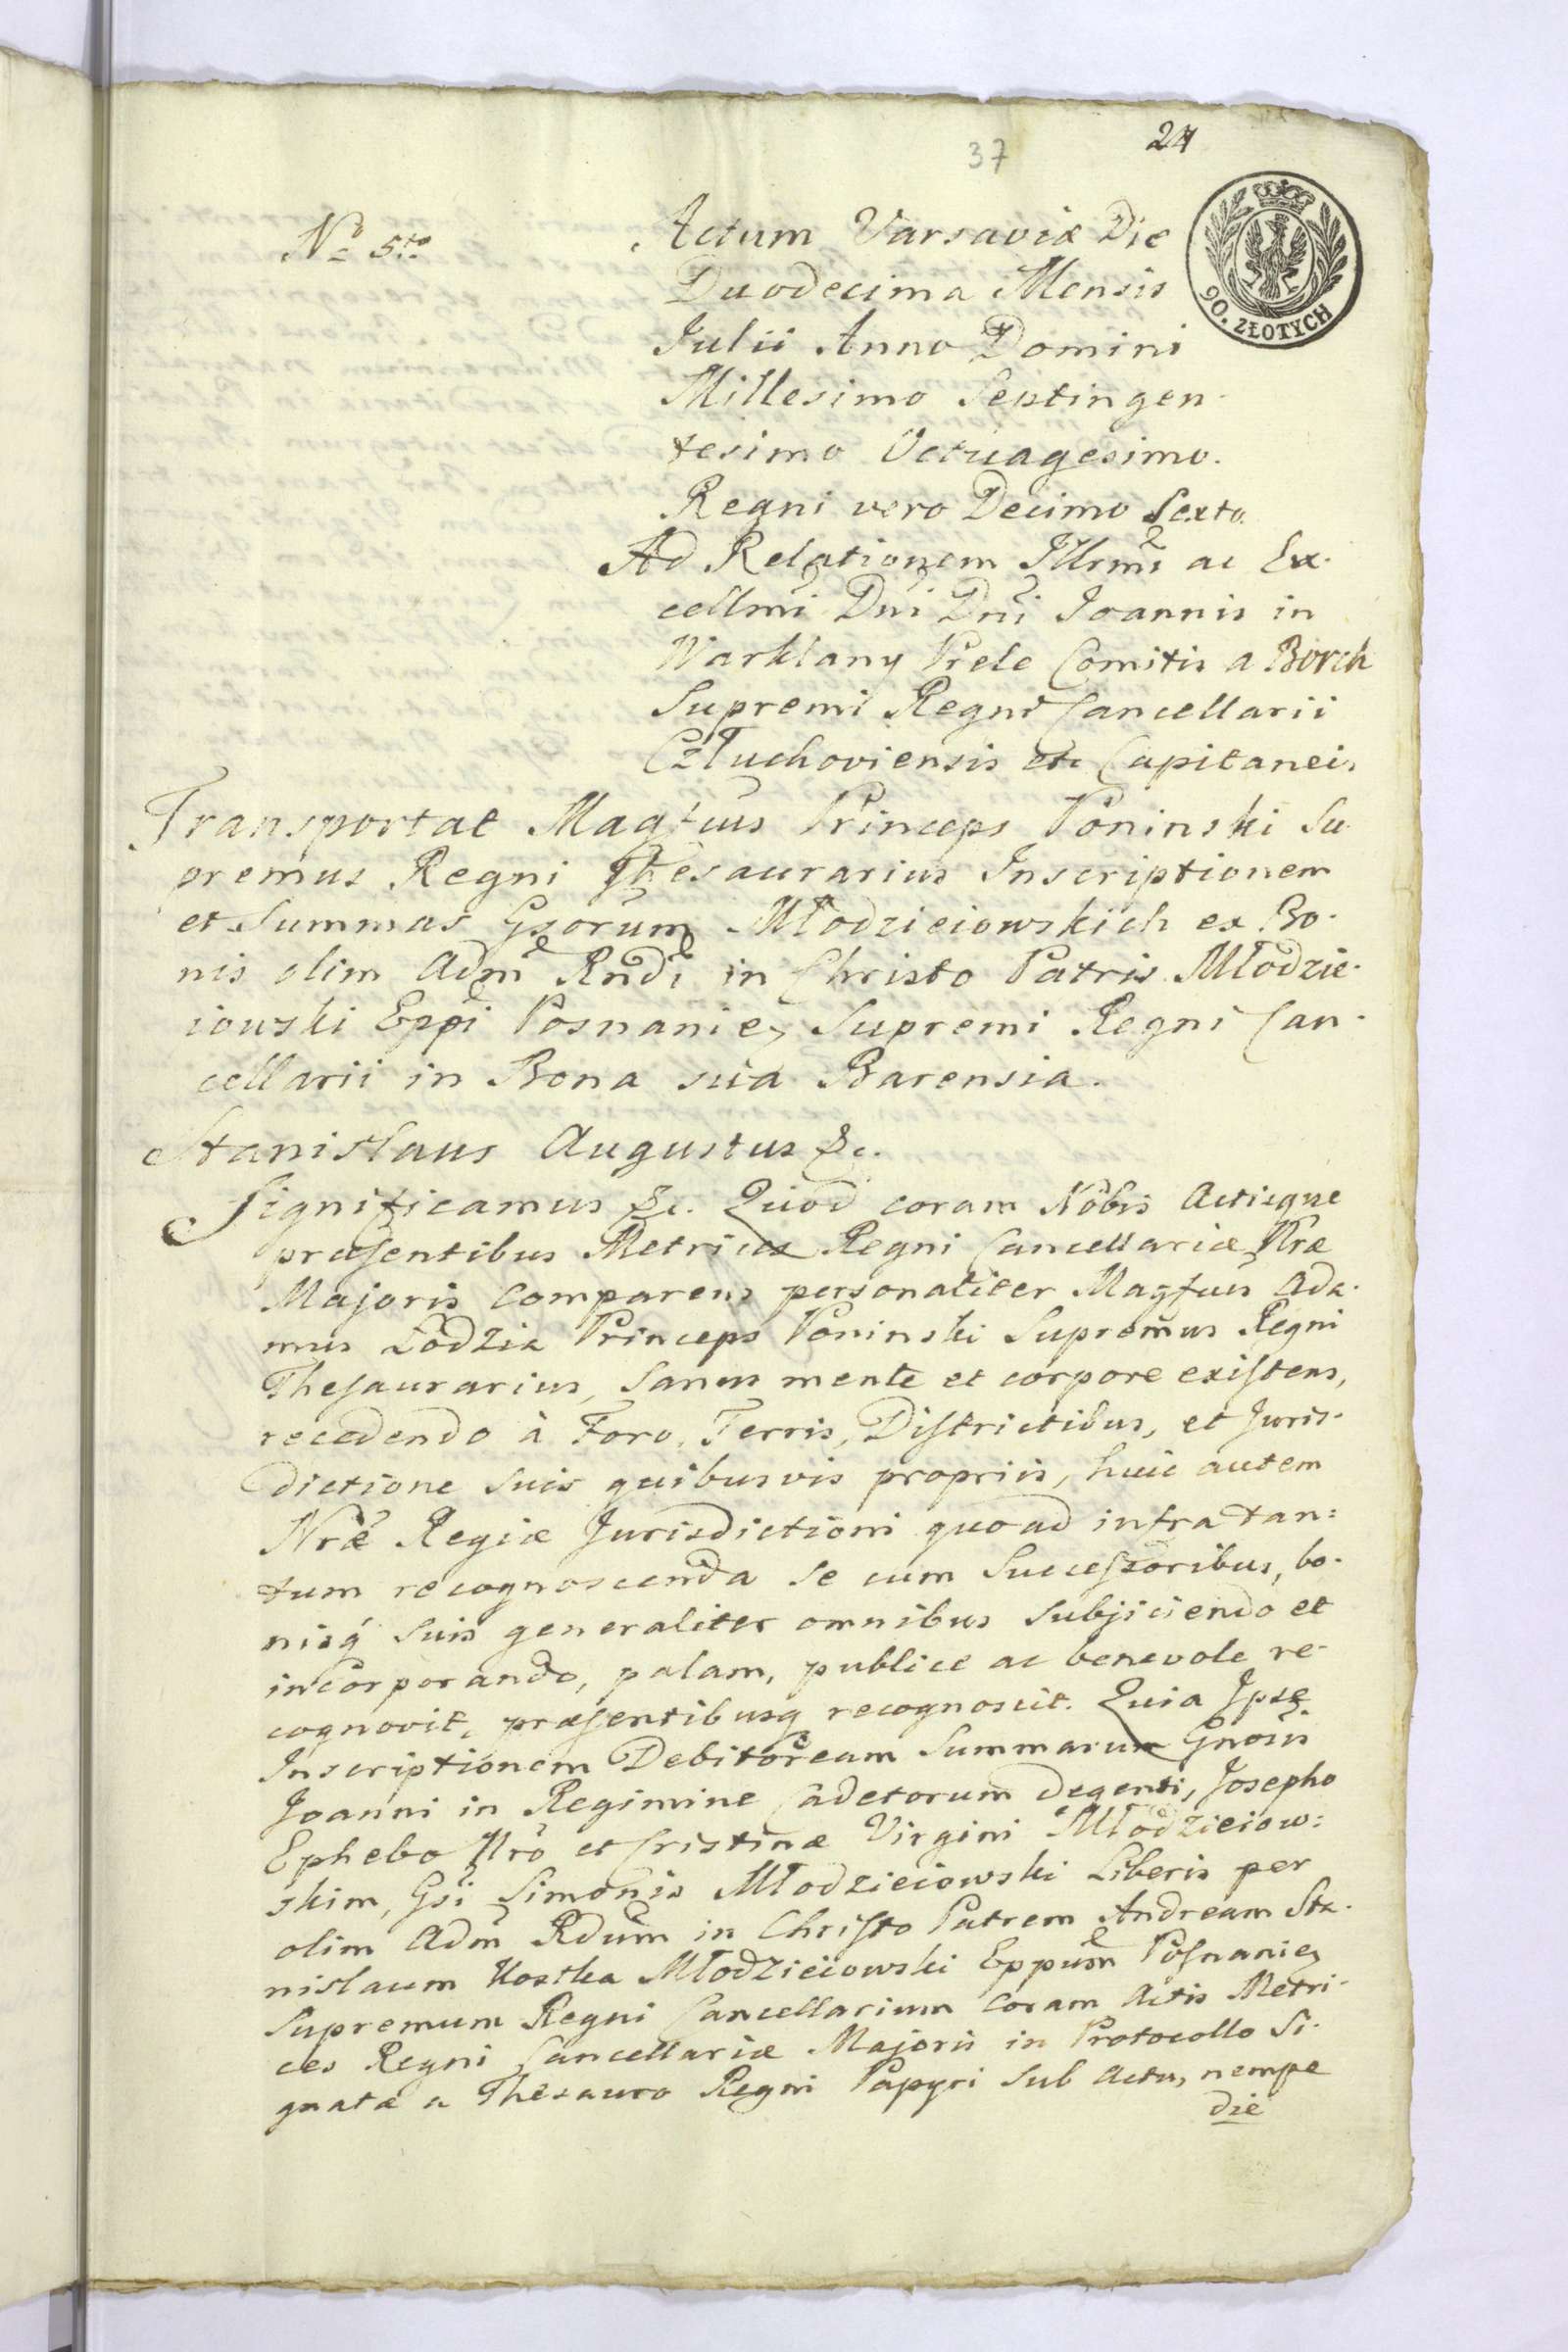 37
24
90. ZŁOTYCH
No 5to
Actum Varsaviæ Die
Duodecima Mensis
Julii Anno Domini
Millesimo Septingen-
tesimo Octuagesimo.
Regni vero Decimo Sexto.
Ad Relationem Illrmi ac Ex-
cellmi Dni Dni Joannis in
Warklany Prele Comitis a Borch
Supremi Regni Cancellarii
Człuchoviensis etc Capitanei.
Transportat Magfcus Princeps Poninski Su-
premus Regni Thesaurarius Inscriptionem
et Summas Gsorum Młodzieiowskich ex Bo-
nis olim Adm Rndi in Christo Patris Młodzie-
iowski Eppi Posnanieſ Supremi Regni Can-
cellarii in Bona sua Barensia.
Stanislaus Augustus &c.
Significamus &c. Quod coram Nobis Actisque
præsentibus Metrices Regni Cancellariæ Nræ
Majoris Comparens personaliter Magfcus Ada-
mus Łodzia Princeps Poninski Supremus Regni
Thesaurarius, sanus mente et corpore existens,
recedendo à Foro, Terris, Districtibus, et Juris-
dictione suis quibusvis propriis, huic autem
Nræ Regiæ Jurisdictioni quoad infra tan=
tum recognoscenda se cum Successoribus, bo-
nisq suis generaliter omnibus subjiciendo et
incorporando, palam, publice ac benevole re-
cognovit, præsentibusq recognoscit. Quia Ipse
Inscriptionem Debitoream Summarum Gnosis
Joanni in Regimine Cadetorum degenti, Josepho
Ephebo Nro et Cristinæ Virgini Młodzieiow=
skim, Gsi Simonis Młodzieiowski Liberis per
olim Adm Rdum in Christo Patrem Andream Sta-
nislaum Kostka Młodzieiowski Eppum Posnanieſ
Supremum Regni Cancellarium Coram Actis Metri-
ces Regni Cancellariæ Majoris in Protocollo Si-
gnatæ a Thesauro Regni Papyri sub Actu, nempe
die